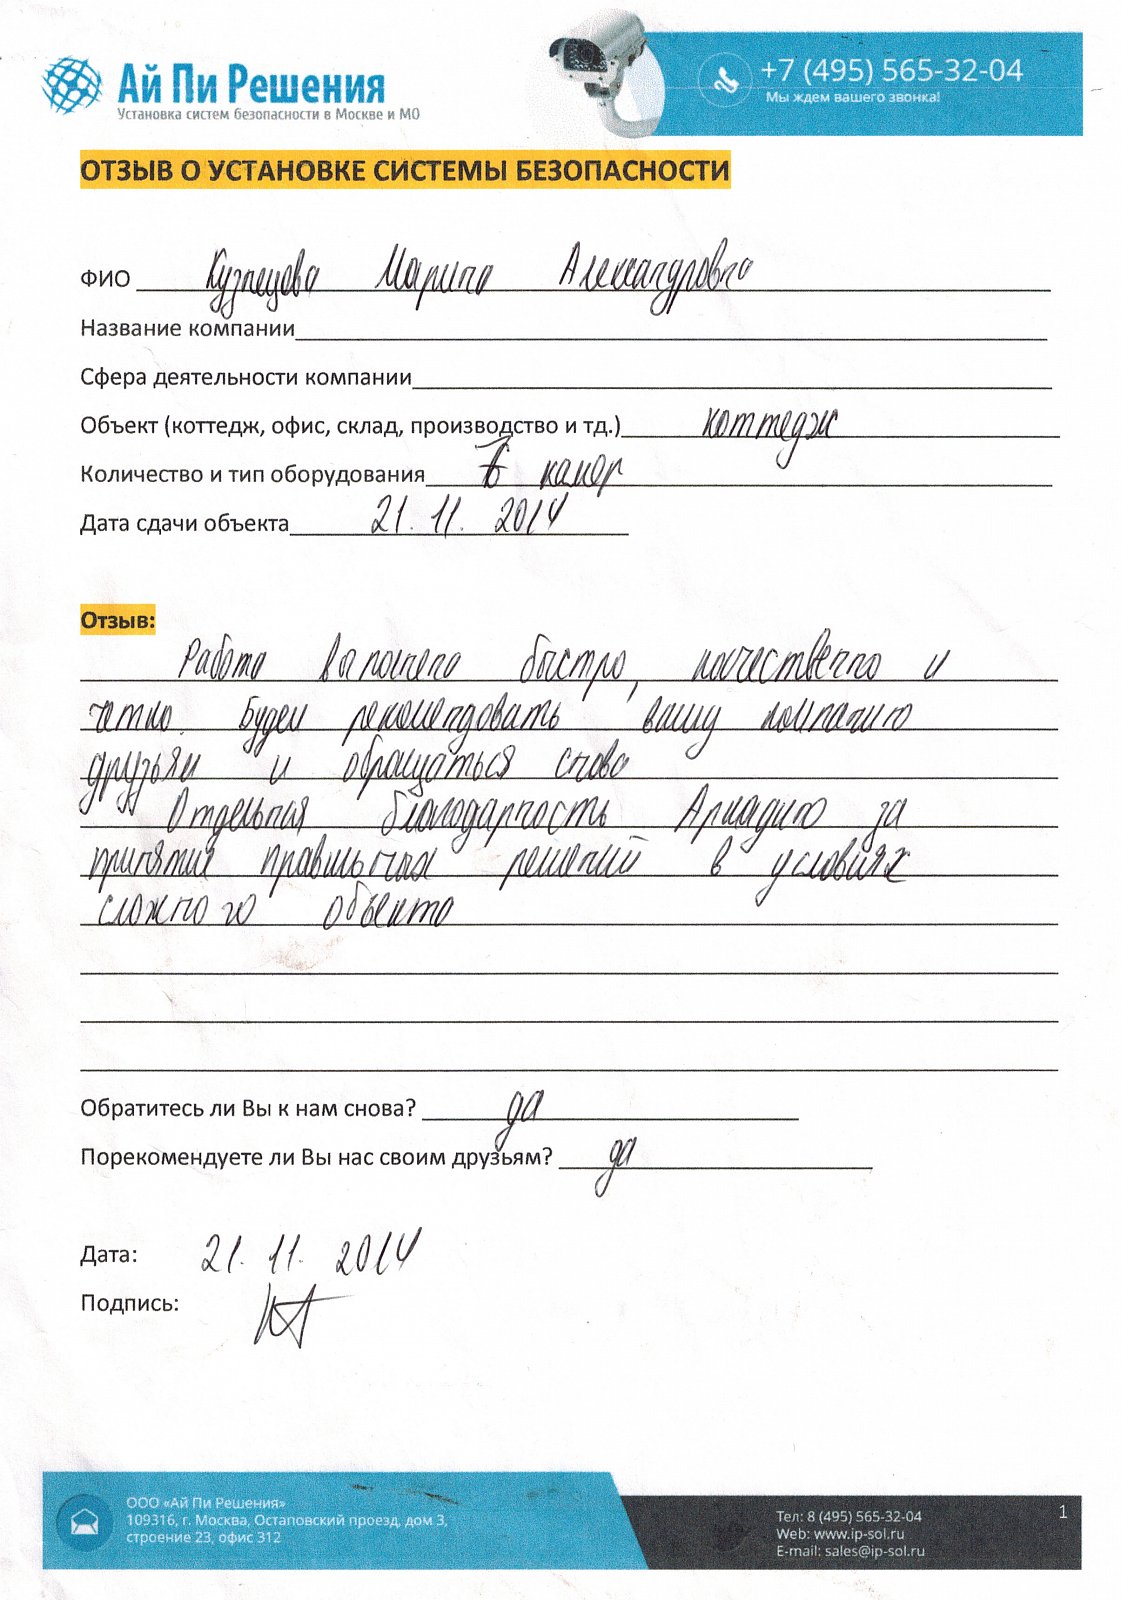 Ай Пи Решения
Установка систем безопасности в Москве и МО
+7 (495) 565-32-04
Мы ждем вашего звонка!
ОТЗЫВ О УСТАНОВКЕ СИСТЕМЫ БЕЗОПАСНОСТИ
ФИО Кузнецова Марина Александровна
Название компании
Сфера деятельности компании
Объект (коттедж, офис, склад, производство и тд.) коттедж
Количество и тип оборудования камер
Дата сдачи объекта 21.11.2014
Отзыв:
Работа выполнена быстро, качественно и
четко. Будем рекомендовать вашу компанию
друзьям и обращаться снова
Отдельная благодарность Аркадию за
принятия правильных решений в условиях
сложного объекта
Обратитесь ли Вы к нам снова? да
Порекомендуете ли Вы нас своим друзьям? да
Дата: 21.11.2014
Подпись:
ООО «Ай Пи Решения»
109316, г. Москва, Остаповский проезд, дом 3,
строение 23, офис 312
Тел: 8 (495) 565-32-04
Web: www.ip-sol.ru
E-mail: sales@ip-sol.ru
1